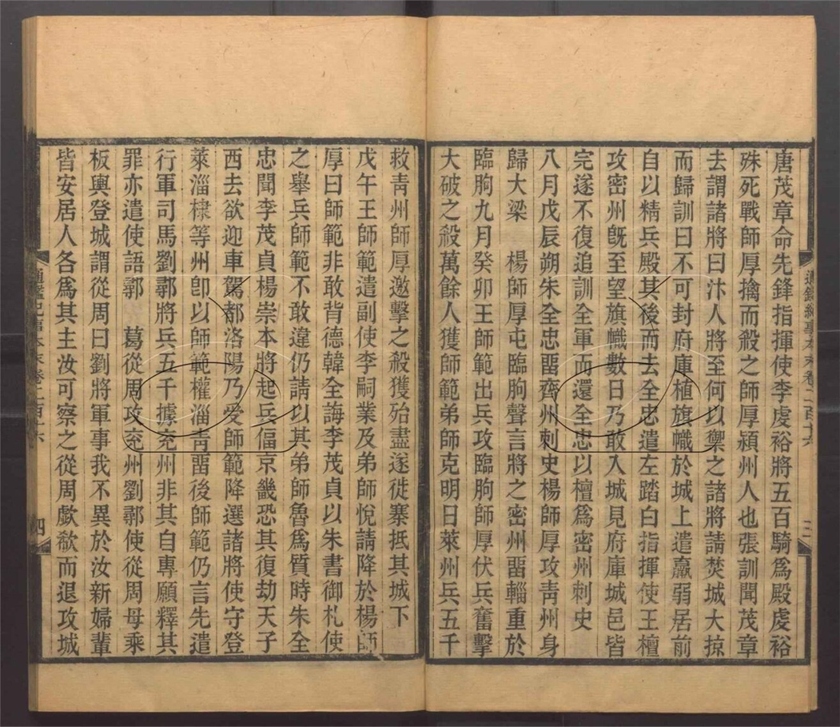 唐茂章命先鋒指揮使李虔裕將五百騎爲殿虔裕
殊死戰師厚擒而殺之師厚潁州人也張訓聞茂章
去謂諸將曰汴人將至何以禦之諸將請焚城大掠
而歸訓曰不可封府庫植旗幟於城上遣羸弱居前
自以精兵殿其後而去全忠遣左踏白指揮使王檀
攻密州旣至望旗幟數日乃敢入城見府庫城邑皆
完遂不復追訓全軍而還全忠以檀爲密州刺史
八月戊辰朔朱全忠畱齊州刺史楊師厚攻靑州身
歸大梁　楊師厚屯臨朐聲言將之密州畱輜重於
臨朐九月癸卯王師範出兵攻臨朐師厚伏兵奮擊
大破之殺萬餘人獲師範弟師克明日萊州兵五千
通鑑紀事本末卷二百十六
三
救靑州師厚邀擊之殺獲殆盡遂徙寨抵其城下
戊午王師範遣副使李嗣業及弟師悅請降於楊師
厚曰師範非敢背德韓全誨李茂貞以朱書御札使
之舉兵師範不敢違仍請以其弟師魯爲質時朱全
忠聞李茂貞楊崇本將起兵偪京畿恐其復劫天子
西去欲迎車駕都洛陽乃受師範降選諸將使守登
萊淄棣等州卽以師範權淄靑畱後師範仍言先遣
行軍司馬劉鄩將兵五千據兗州非其自專願釋其
罪亦遣使語鄩　葛從周攻兗州劉鄩使從周母乘
板輿登城謂從周曰劉將軍事我不異於汝新婦輩
皆安居人各爲其主汝可察之從周歔欷而退攻城
通鑑紀事本末卷二百十六
四